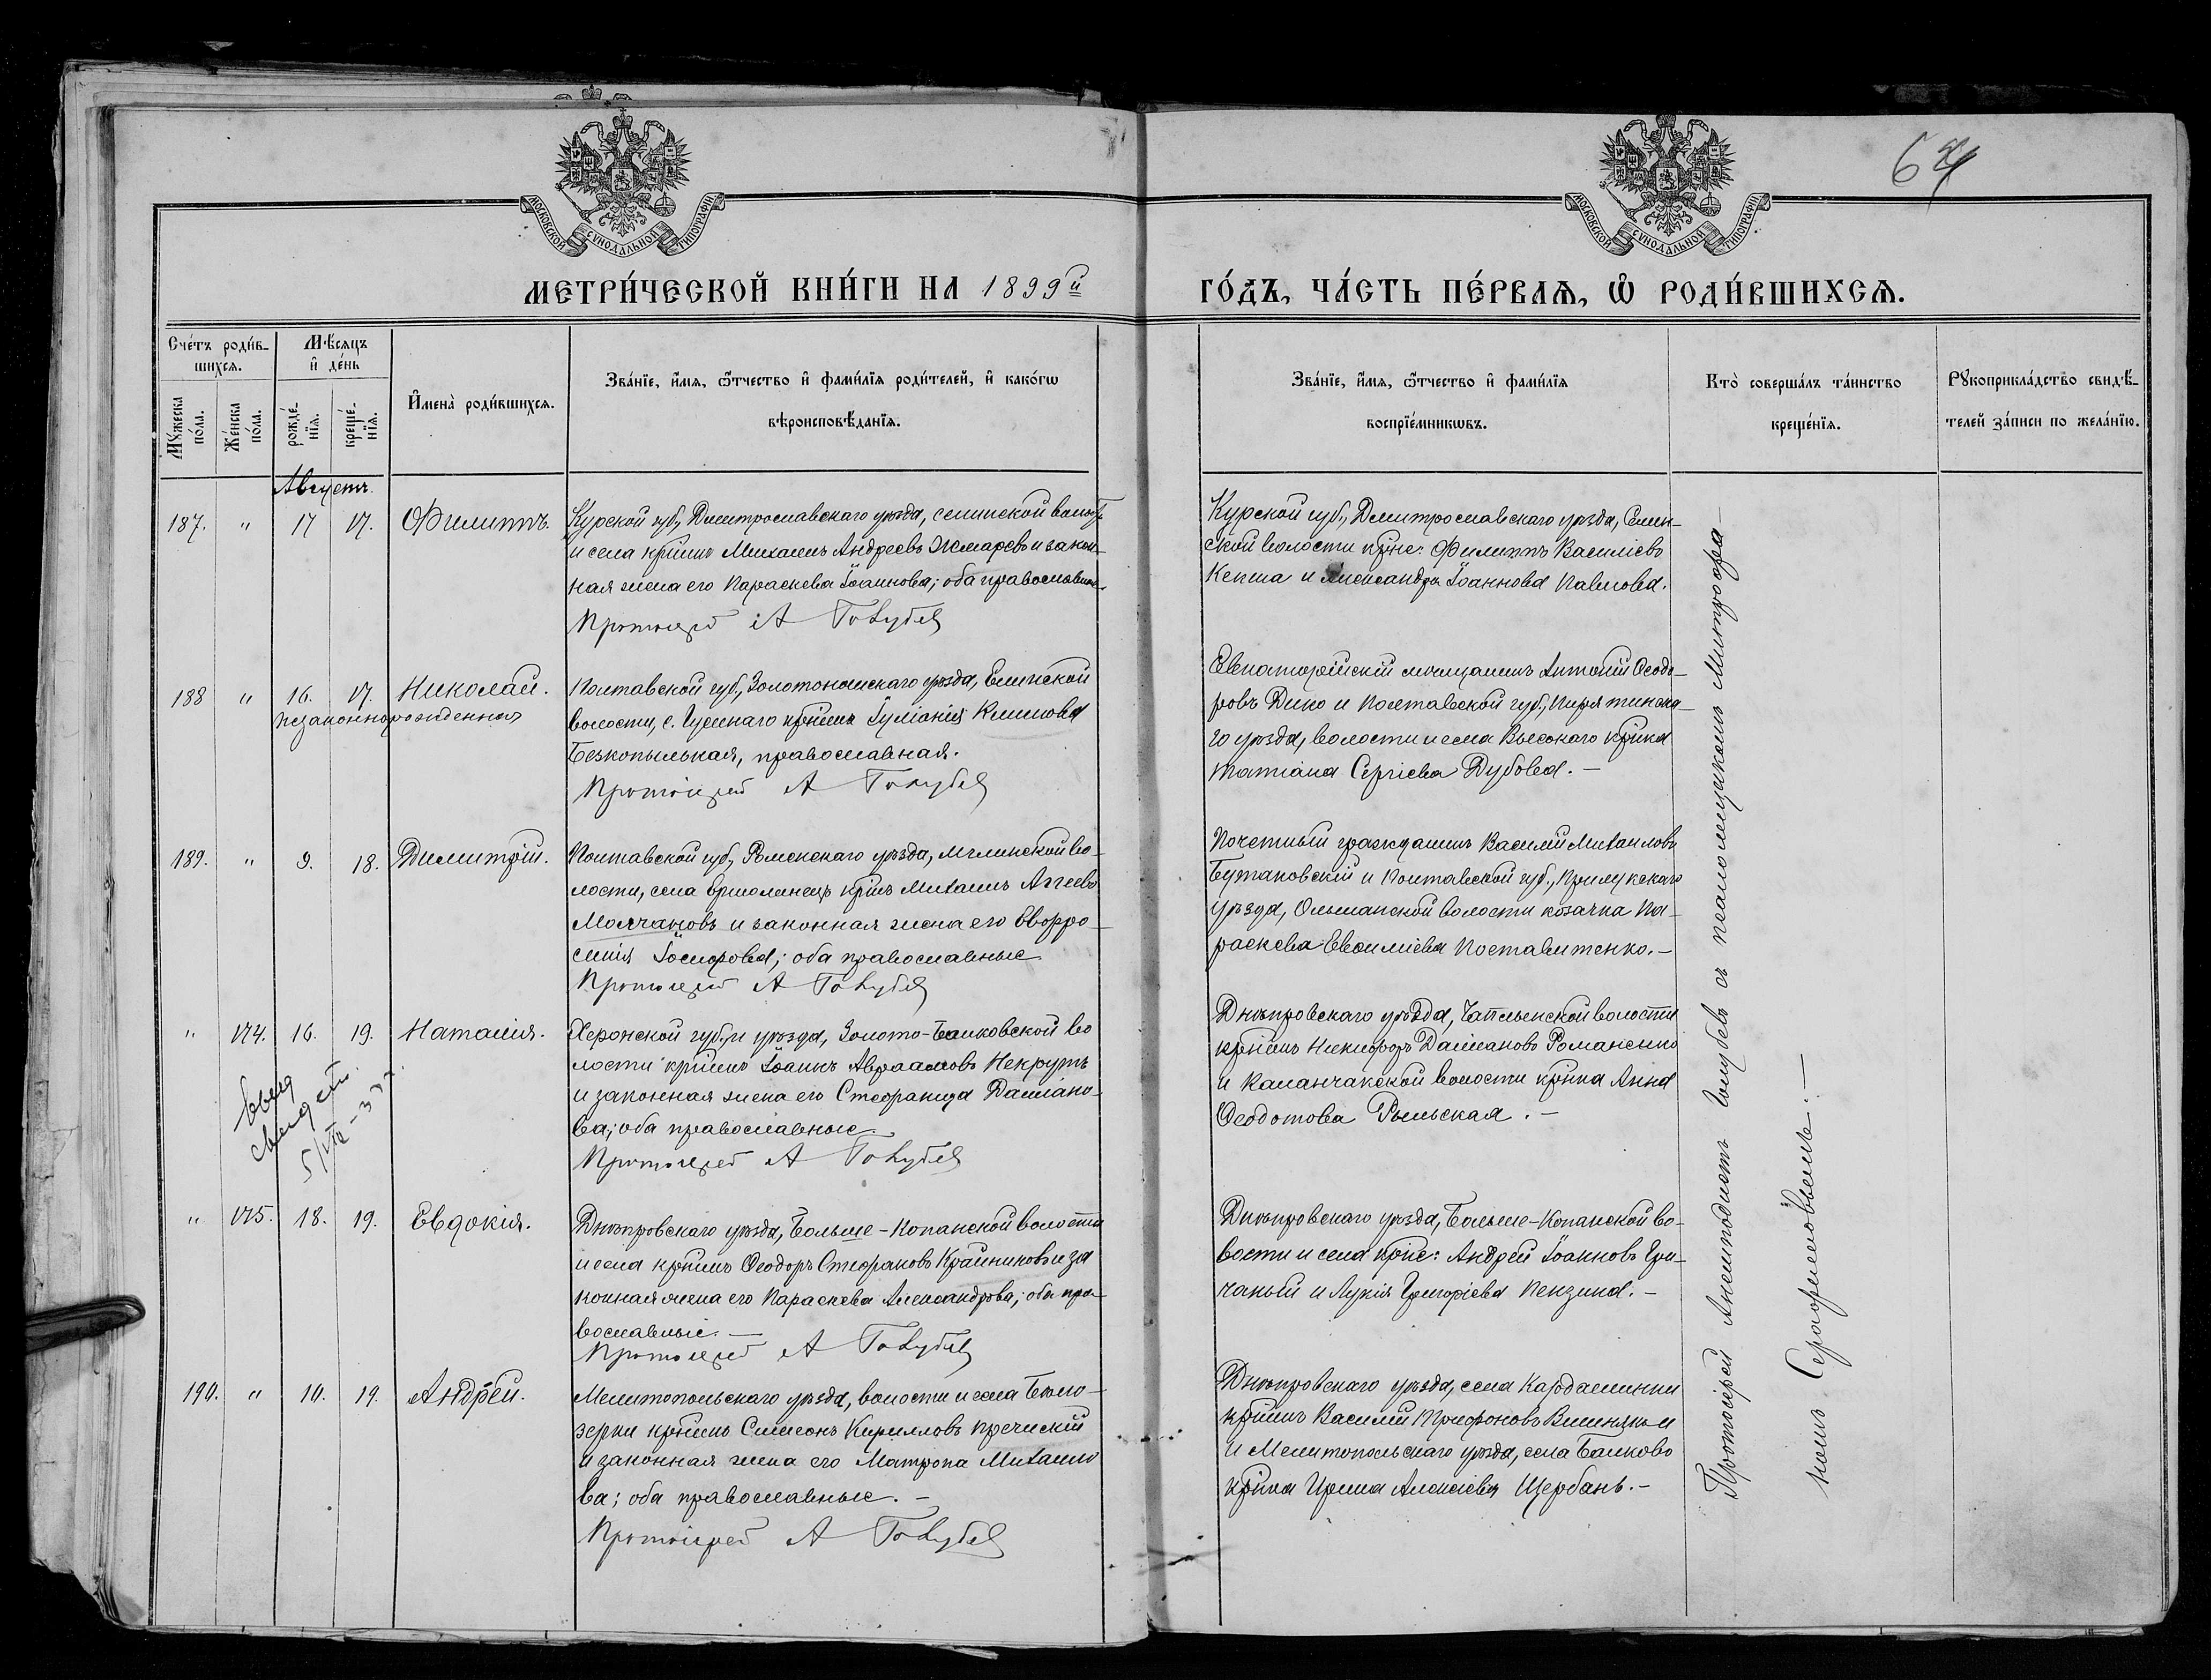 МОСКОВСКОЙ СУНОДАЛЬНОЙ ТИПОГРАФІИ
МОСКОВСКОЙ СУНОДАЛЬНОЙ ТИПОГРАФІИ
64
МЕТРИ́ЧЕСКОЙ КНИ́ГИ НА 1899й
ГО́ДЪ, ЧА́СТЬ ПЕ́РВАѦ, Ѽ РОДИ́ВШИХСѦ.
Сче́тъ роди́в-
шихсѧ.
Мꙋ́жеска по́ла.
Же́нска по́ла.
Мѣ́сѧцъ
и҆ де́нь
рожде́-
нїѧ.
креще́-
нїѧ.
И҆мена̀ роди́вшихсѧ.
Зва́нїе, и҆́мѧ, ѻ҆́тчество и҆ фами́лїѧ роди́телей, и҆ како́гѡ
вѣроисповѣ́данїѧ.
Зва́нїе, и҆́мѧ, ѻ҆́тчество и҆ фами́лїѧ
воспрїе́мникѡвъ.
Кто̀ соверша́лъ та́инство
креще́нїѧ.
Рꙋкоприкла́дство свидѣ́-
телей за́писи по жела́нїю.
Августъ.
187. " 17 17. Филиппъ.
Курской губ., Дмитрославскаго уѣзда, селинской волости
и села крѣнинъ Михаилъ Андреевъ Жмаревъ и закон-
ная жена его Параскева Іоаннова; оба православные.
Протоіерей А Голубев
Курской губ., Дмитрославскаго уѣзда, Селин-
ской волости крѣне: Филиппъ Василіевъ
Кепша и Александра Іоаннова Павлова.
188 " 16. 17. Николай.
незаконнорожденный
Полтавской губ., Золотоношскаго уѣзда, Еминской
волости, с. Гусинаго Іуліанія Климова
Безкопыльная, православная.
Протоіерей А Голубев
Евпаторійскій мѣщанинъ Антоній Ѳеодо-
ровъ Дико и Полтавской губ., Пирятинска-
го уѣзда, волости и села Высокаго крѣнка
Татіана Сергіева Дубова. —
189. " 9. 18. Димитрій.
Полтавской губ., Роменскаго уѣзда, Мглинской во-
лости, села крѣнъ Михаилъ Аггеевъ
Молчановъ и законная жена его Евфро-
синія Іосифова; оба православные
Протоіерей А Голубев
Почетный гражданинъ Василій Михаиловъ
Бутаковскій и Полтавской губ., Прилукскаго
уѣзда, Ольшанской волости козачка Па-
раскева Евѳиміева Поставитенко. —
" 174. 16. 19. Наталія.
Херсонской губ. и уѣзда, Золото-Балковской во
лости крѣнинъ Іоаннъ Авраамовъ Некрутъ
и законная жена его Стефанида Даміано-
ва; оба православные.
Протоіерей А Голубев
Днѣпровскаго уѣзда, Чаплынской волости
крѣнинъ Никифоръ Даміановъ Романенко
и Каланчакской волости крѣнка Анна
Ѳеодотова Рыльская. —
" 175. 18. 19. Евдокія.
Днѣпровскаго уѣзда, Больше-Копанской волости
и села крѣнинъ Ѳеодоръ Стефановъ Крайниковъ и за
конная жена его Параскева Александрова; оба пра-
вославные. —
Протоіерей А Голубев
Днѣпровскаго уѣзда, Больше-Копанской во-
лости и села крѣне: Андрей Іоанновъ Гри-
чаный и Лукія Григорієва Пензина. —
190. " 10. 19. Андрей.
Мелитопольскаго уѣзда, волости и села Бѣло-
зерки крѣнинъ Симеонъ Кирилловъ Пречискій
и законная жена его Матрона Михаило
ва; оба православные. —
Протоіерей А Голубев
Днѣпровскаго уѣзда, села Кардашинки
крѣнинъ Василій Трифоновъ
и Мелитопольскаго уѣзда, села Балково
крѣнка Ирина Алексіева Щербань. —
Протоіерей Анемподистъ Голубевъ съ псаломщикомъ Митрофа-
номъ Серафимовымъ. —